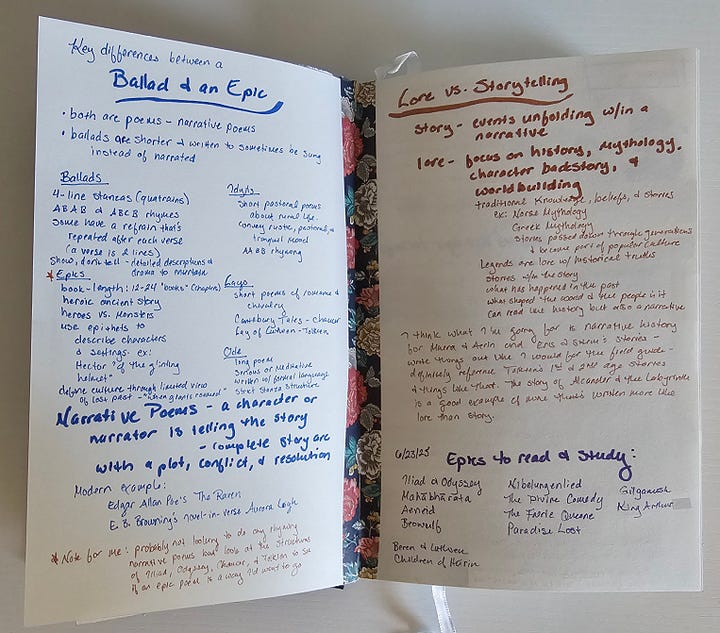 Key differences between a
Ballad & an Epic
• both are poems - narrative poems
• ballads are shorter & written to sometimes be sung
instead of narrated
Ballads
4-line stanzas (quatrains)
ABAB & ABCB rhymes
some have a refrain that's
repeated after each verse
(a verse is 2 lines)
Show, don't tell - detailed descriptions &
drama to
* Epics
book-length: 12-24 "books" (chapters)
heroic ancient story
heroes vs. Monsters
use epithets to
describe characters
& settings ex:
Hector "of the glinting
helmet"
define culture through limited view
of lost past - "when giants roamed"
Idylls
Short pastoral poems
about rural life.
Convey rustic, pastoral, &
tranquil mood
AABB rhyming
Lays
short poems of romance &
chivalry
Cantebury Tales - Chaucer
Lay of Luthien - Tolkien
Ode
long poem
Serious or Meditative
written w/ formal language
strict Stanza Structure
Narrative Poems - a character or
narrator is telling the story
- complete story arc
with a plot, conflict, & resolution
Modern example:
Edgar Allan Poe's The Raven
E. B. Browning's novel-in-verse Aurora Leigh
* Note for me: probably not looking to do any rhyming
narrative poems but look at the structures
of Iliad, Odyssey, Chaucer, & Tolkien to see
if an epic poem is a way I'd want to go
Lore vs. Storytelling
story - events unfolding w/in a
narrative
lore - focus on history, mythology,
character backstory, &
worldbuilding
traditional knowledge, beliefs, & stories
ex: Norse Mythology
Greek Mythology
Stories passed down through generations
& become part of popular culture
Legends are lore w/ historical truths
stories w/in the story
what has happened in the past
what shaped the world & the people in it
can read like history but also a narrative
I think what I'm going for is narrative history
for & Aerin and Eris & Storm's stories -
write things out like I would for the field guide -
definitely reference Tolkien's 1st & 2nd age stories
& things like that. The story of Alcander & the Labyrinth
is a good example of more that's written more like
lore than story.
6/23/25
Epics to read & Study:
Iliad & Odyssey
Mahābhārata
Aeneid
Beowulf
Beren & Luthien
Children of Húrin
Nibelungenlied
The Divine Comedy
The Faerie Queene
Paradise Lost
Gilgamesh
King Arthur